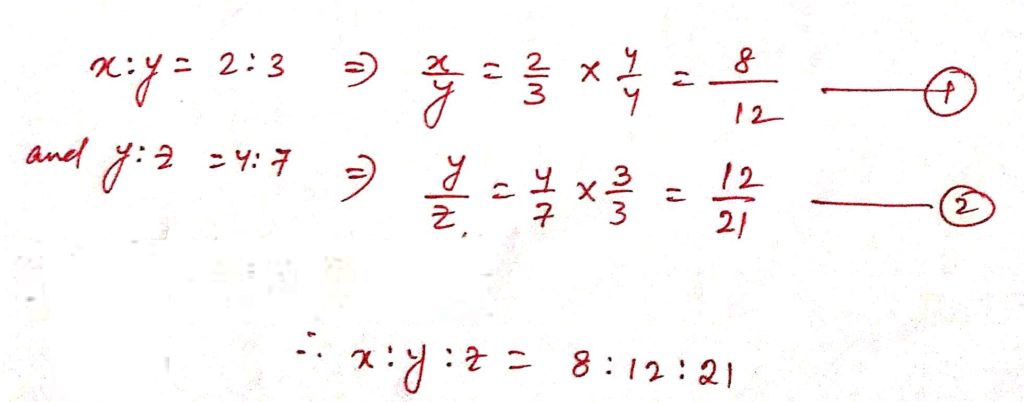 x:y = 2:3 ⇒ x/y = 2/3 × 4/4 = 8/12 —— ①
and y:z = 4:7 ⇒ y/z = 4/7 × 3/3 = 12/21 —— ②
∴ x:y:z = 8:12:21